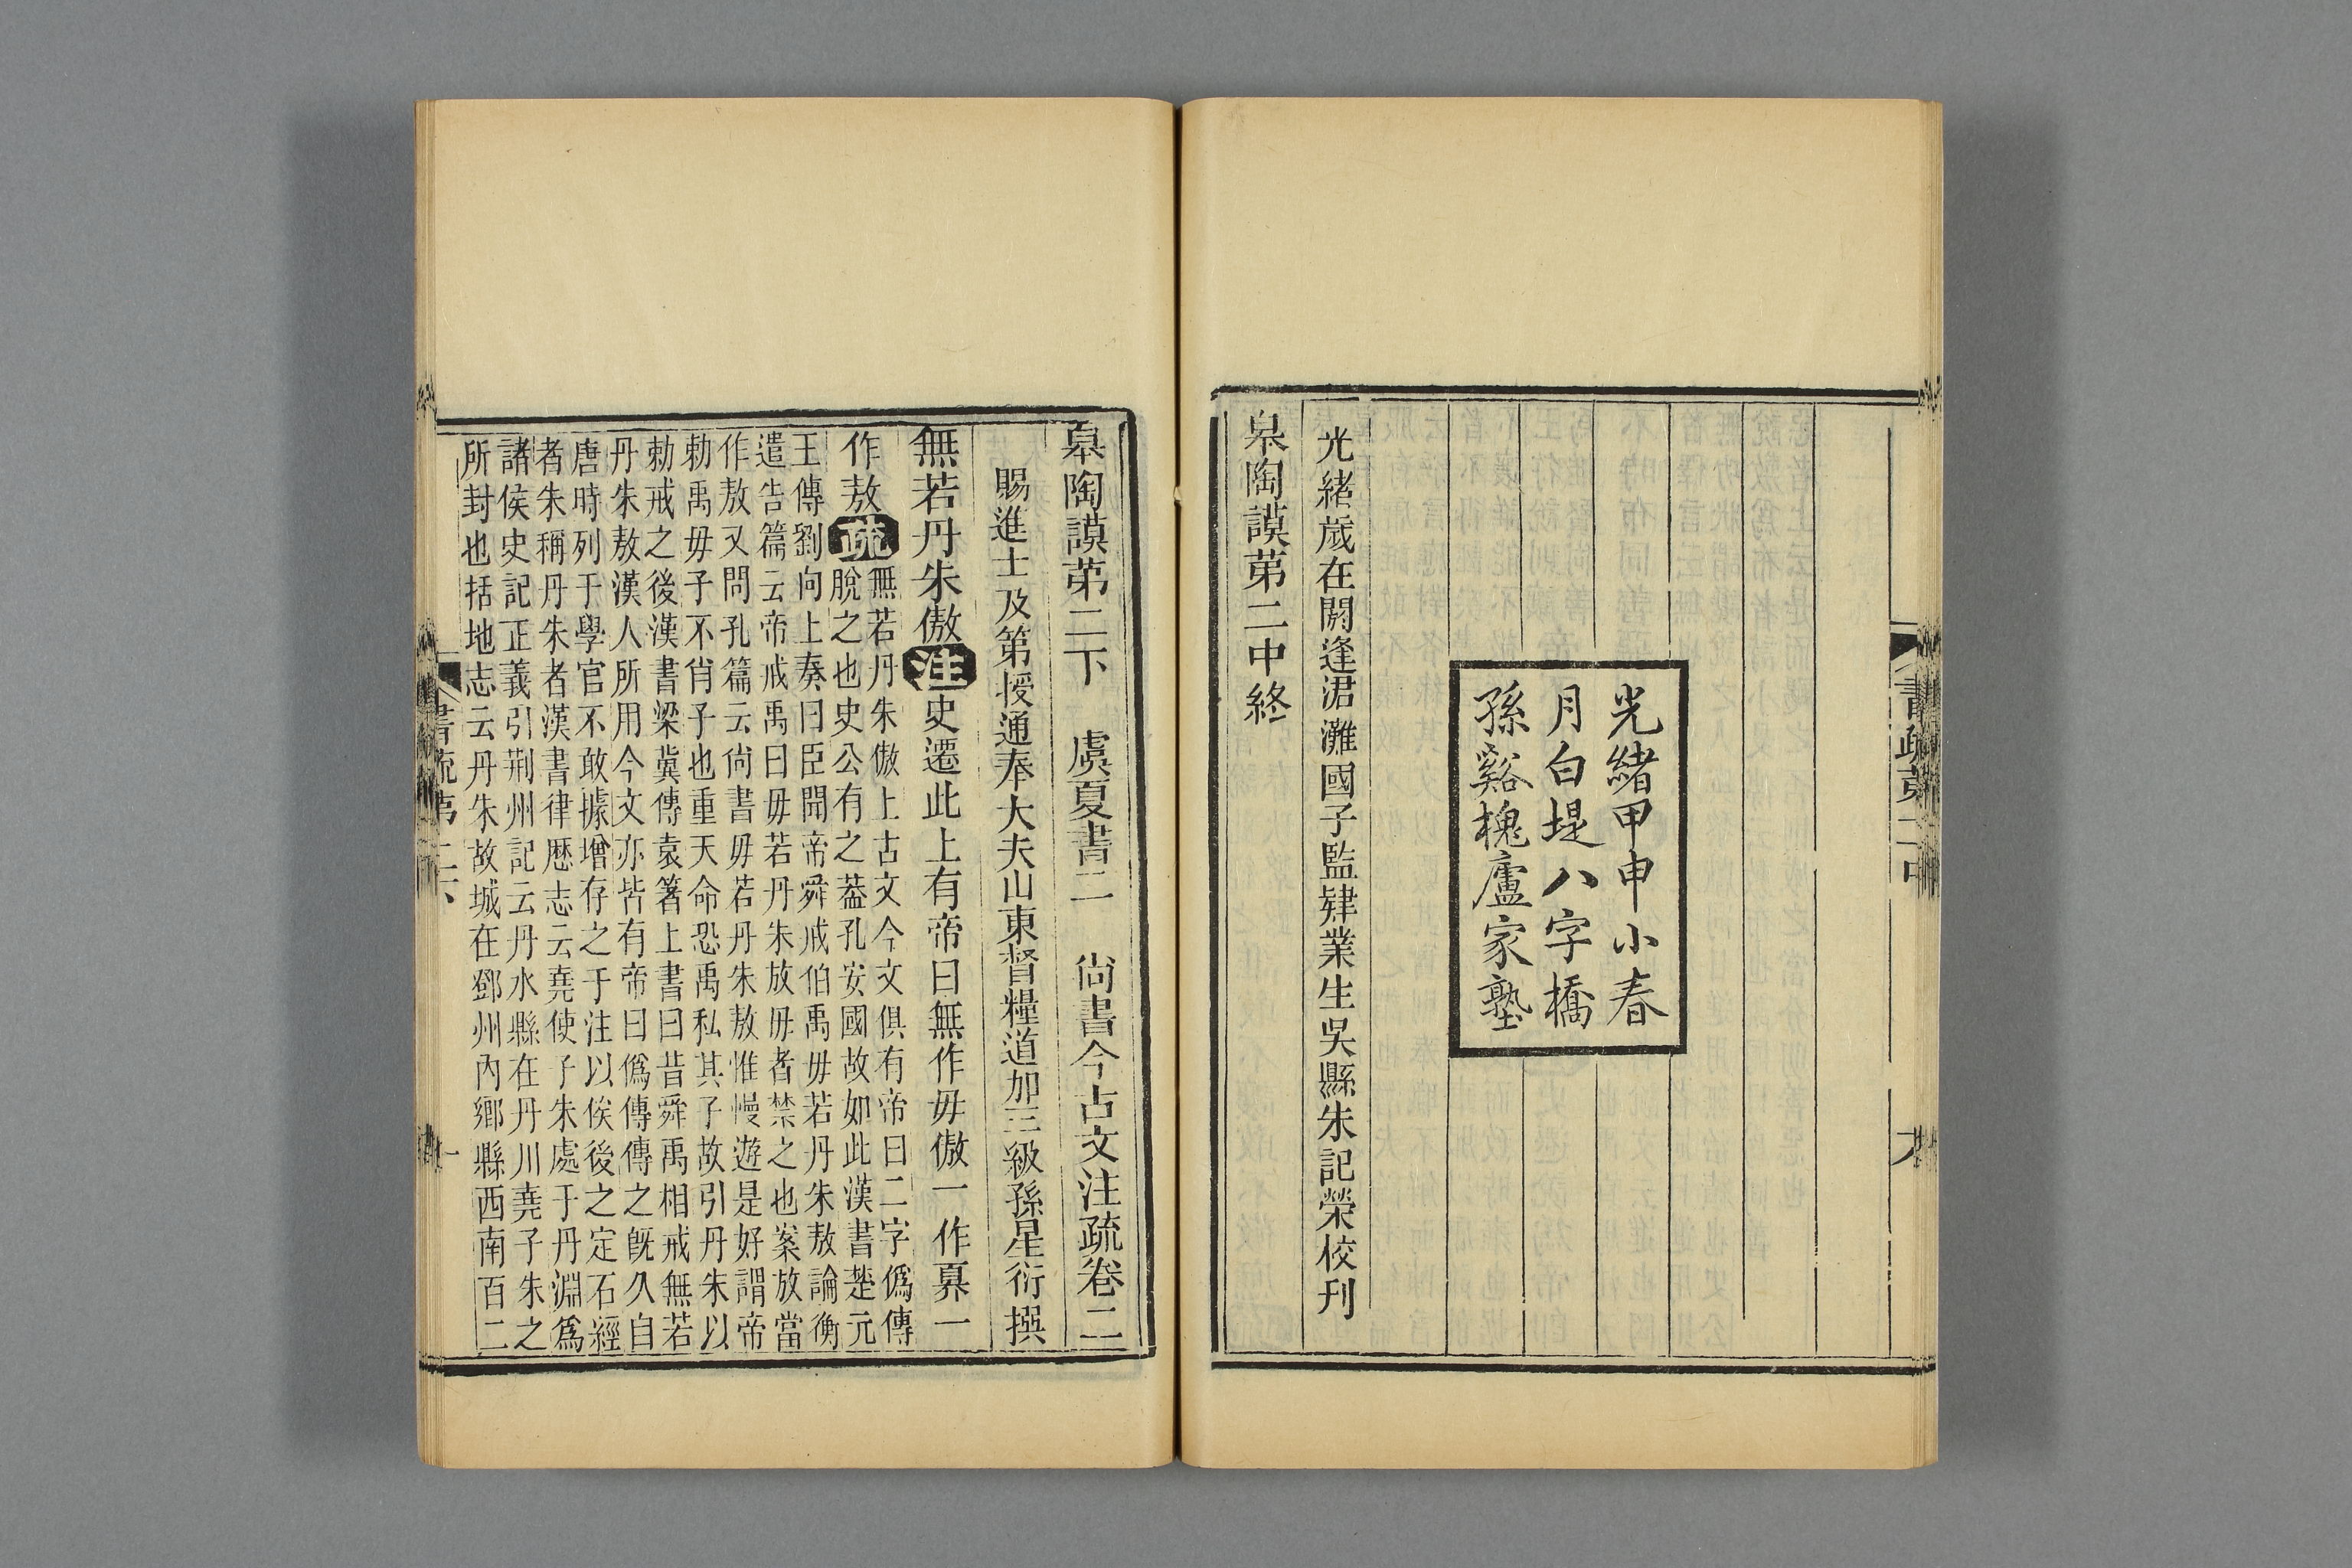 書疏第二中
九
光緒甲申小春
月白堤八字橋
孫谿槐廬家塾
光緒歲在閼逢涒灘國子監肄業生吳縣朱記榮校刊
皋陶謨第二中終
皋陶謨第二下　虞夏書二　尚書今古文注疏卷二
賜進士及第授通奉大夫山東督糧道加三級孫星衍撰
無若丹朱傲注史遷此上有帝曰無作毋傲一作奡一
作敖疏無若丹朱傲上古文今文俱有帝曰二字僞傳
脫之也史公有之葢孔安國故如此漢書楚元
王傳劉向上奏曰臣聞帝舜戒伯禹毋若丹朱敖論衡
遣告篇云帝戒禹曰毋若丹朱放毋者禁之也案放當
作敖又問孔篇云尚書毋若丹朱敖惟慢遊是好謂帝
勑禹毋子不肖子也重天命恐禹私其子故引丹朱以
勑戒之後漢書梁冀傳袁箸上書曰昔舜禹相戒無若
丹朱敖漢人所用今文亦皆有帝曰僞傳傳之旣久自
唐時列于學官不敢據增存之于注以俟後之定石經
者朱稱丹朱者漢書律歷志云堯使子朱處于丹淵爲
諸侯史記正義引荆州記云丹水縣在丹川堯子朱之
所封也括地志云丹朱故城在鄧州內鄉縣西南百二
書疏第二下
一